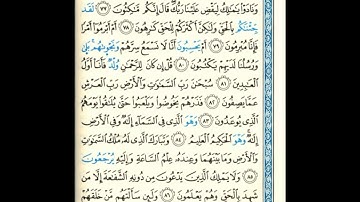 وَنَادَوْا۟ يَـٰمَـٰلِكُ لِيَقْضِ عَلَيْنَا رَبُّكَ ۖ قَالَ إِنَّكُم مَّـٰكِثُونَ ٧٧ لَقَدْ
جِئْنَـٰكُم بِٱلْحَقِّ وَلَـٰكِنَّ أَكْثَرَكُمْ لِلْحَقِّ كَـٰرِهُونَ ٧٨ أَمْ أَبْرَمُوٓا۟ أَمْرًا
فَإِنَّا مُبْرِمُونَ ٧٩ أَمْ يَحْسِبُونَ أَنَّا لَا نَسْمَعُ سِرَّهُمْ وَنَجْوَىٰهُم ۚ بَلَىٰ
وَرُسُلُنَا لَدَيْهِمْ يَكْتُبُونَ ٨٠ قُلْ إِن كَانَ لِلرَّحْمَـٰنِ وَلَدٌ فَأَنَا۠ أَوَّلُ
ٱلْعَـٰبِدِينَ ٨١ سُبْحَـٰنَ رَبِّ ٱلسَّمَـٰوَٰتِ وَٱلْأَرْضِ رَبِّ ٱلْعَرْشِ
عَمَّا يَصِفُونَ ٨٢ فَذَرْهُمْ يَخُوضُوا۟ وَيَلْعَبُوا۟ حَتَّىٰ يُلَـٰقُوا۟ يَوْمَهُمُ
ٱلَّذِى يُوعَدُونَ ٨٣ وَهُوَ ٱلَّذِى فِى ٱلسَّمَآءِ إِلَـٰهٌ وَفِى ٱلْأَرْضِ
إِلَـٰهٌ ۚ وَهُوَ ٱلْحَكِيمُ ٱلْعَلِيمُ ٨٤ وَتَبَارَكَ ٱلَّذِى لَهُۥ مُلْكُ ٱلسَّمَـٰوَٰتِ
وَٱلْأَرْضِ وَمَا بَيْنَهُمَا وَعِندَهُۥ عِلْمُ ٱلسَّاعَةِ وَإِلَيْهِ يُرْجَعُونَ
٨٥ وَلَا يَمْلِكُ ٱلَّذِينَ يَدْعُونَ مِن دُونِهِ ٱلشَّفَـٰعَةَ إِلَّا مَن
شَهِدَ بِٱلْحَقِّ وَهُمْ يَعْلَمُونَ ٨٦ وَلَئِن سَأَلْتَهُم مَّنْ خَلَقَهُمْ